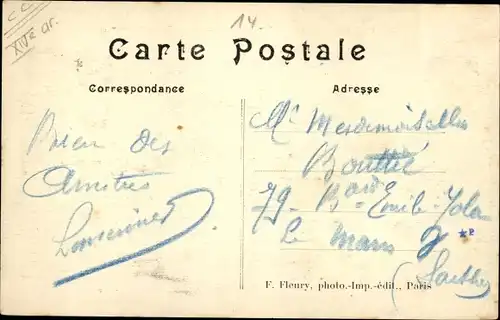 14.
C C
XIVe ar.
Carte Postale
Correspondance
Adresse
Bien des
Amitiés
Mesdemoiselles
79 - Bd Emile-Zola
Le Mans
(Sarthe
F. Fleury, photo.-Imp.-édit., Paris